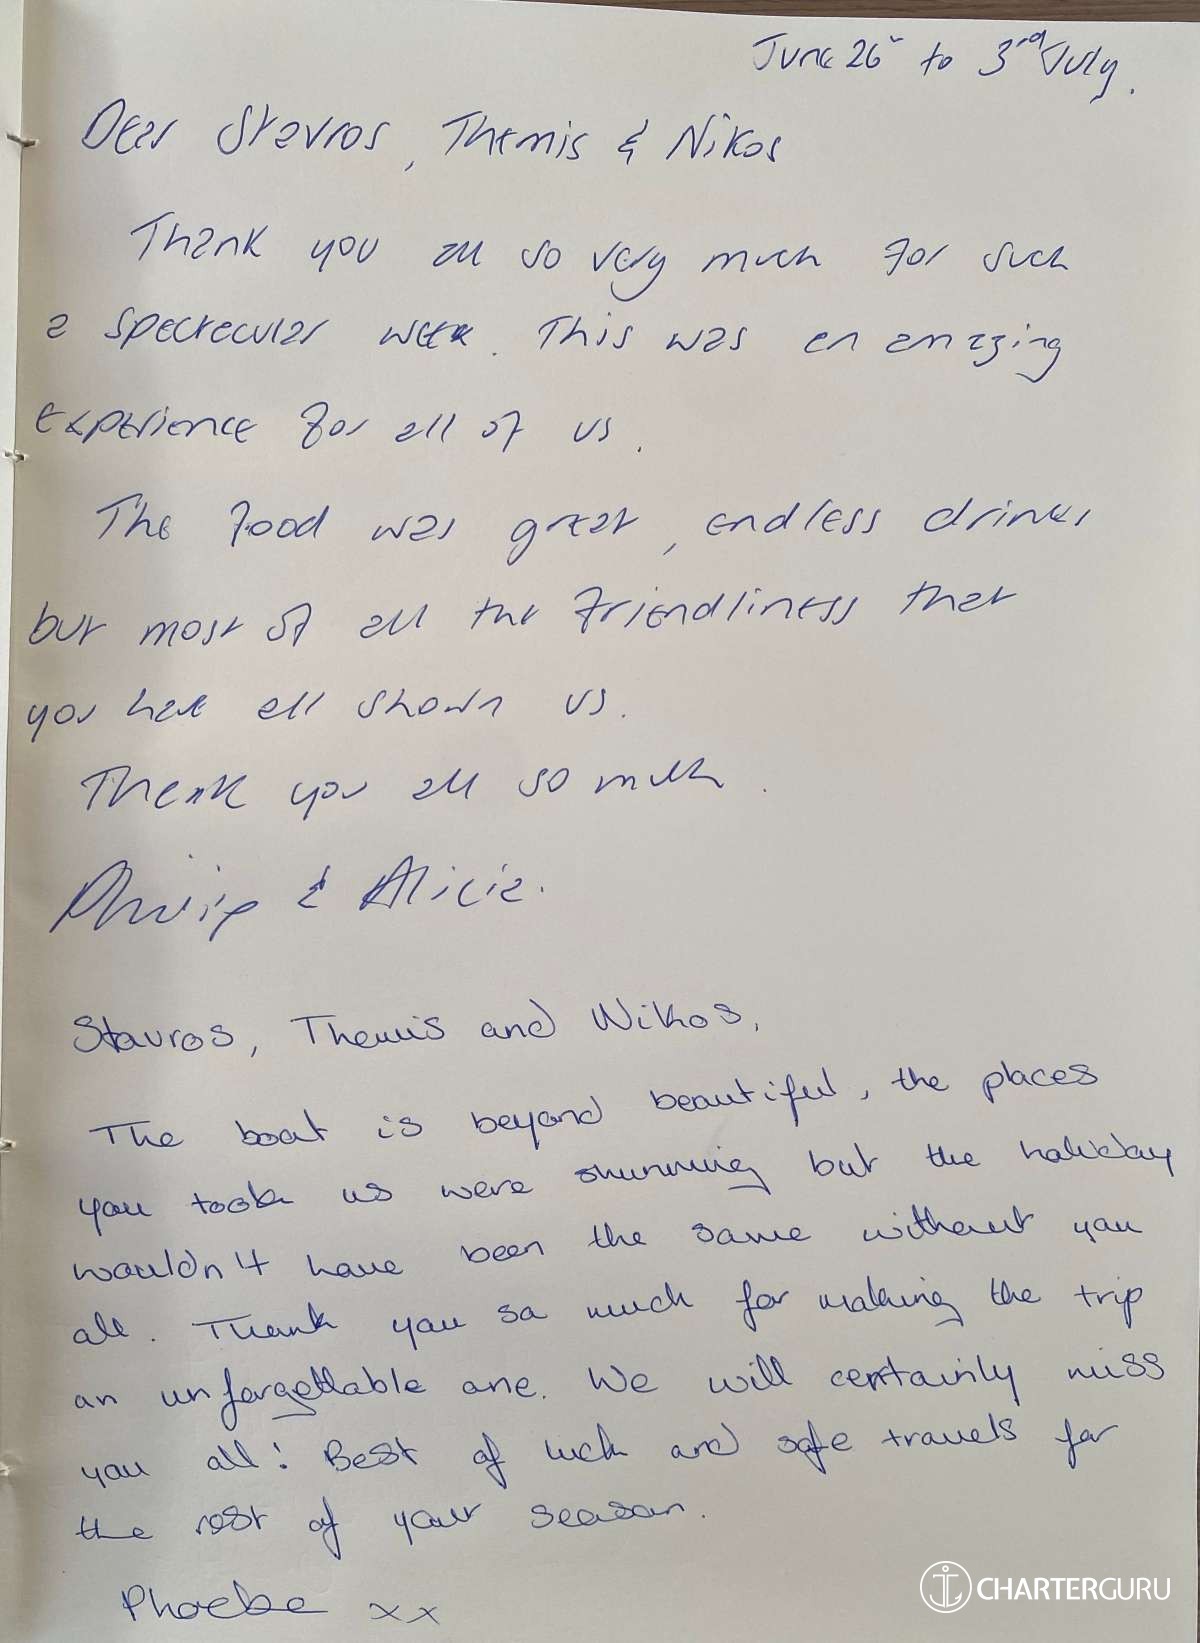 June 26 to 3rd July.
Dear Stavros, Themis & Nikos
Thank you all so very much for such
a spectecular week. This was an amazing
experience for all of us.
The food was great, endless drinks
but most of all the friendliness that
you have all shown us.
Thank you all so much.
Philip & Alicia.
Stavros, Themis and Nikos,
The boat is beyond beautiful, the places
you took us were stunning but the holiday
wouldn't have been the same without you
all. Thank you so much for making the trip
an unforgettable one. We will certainly miss
you all! Best of luck and safe travels for
the rest of your season.
Phoebe xx
CHARTERGURU